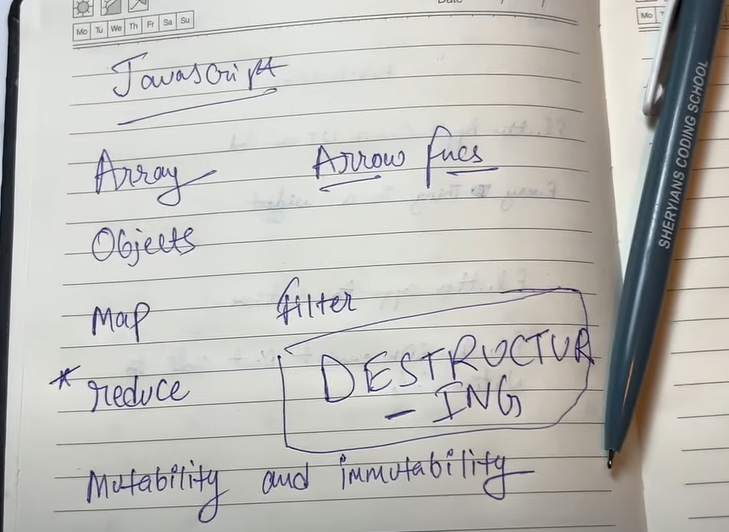 Date
Mo Tu We Th Fr Sa Su
Mo
Javascript
Array Arrow fncs
Objects
Map filter
* reduce DESTRUCTUR
- ING
Mutability and immutability
SHERYIANS CODING SCHOOL